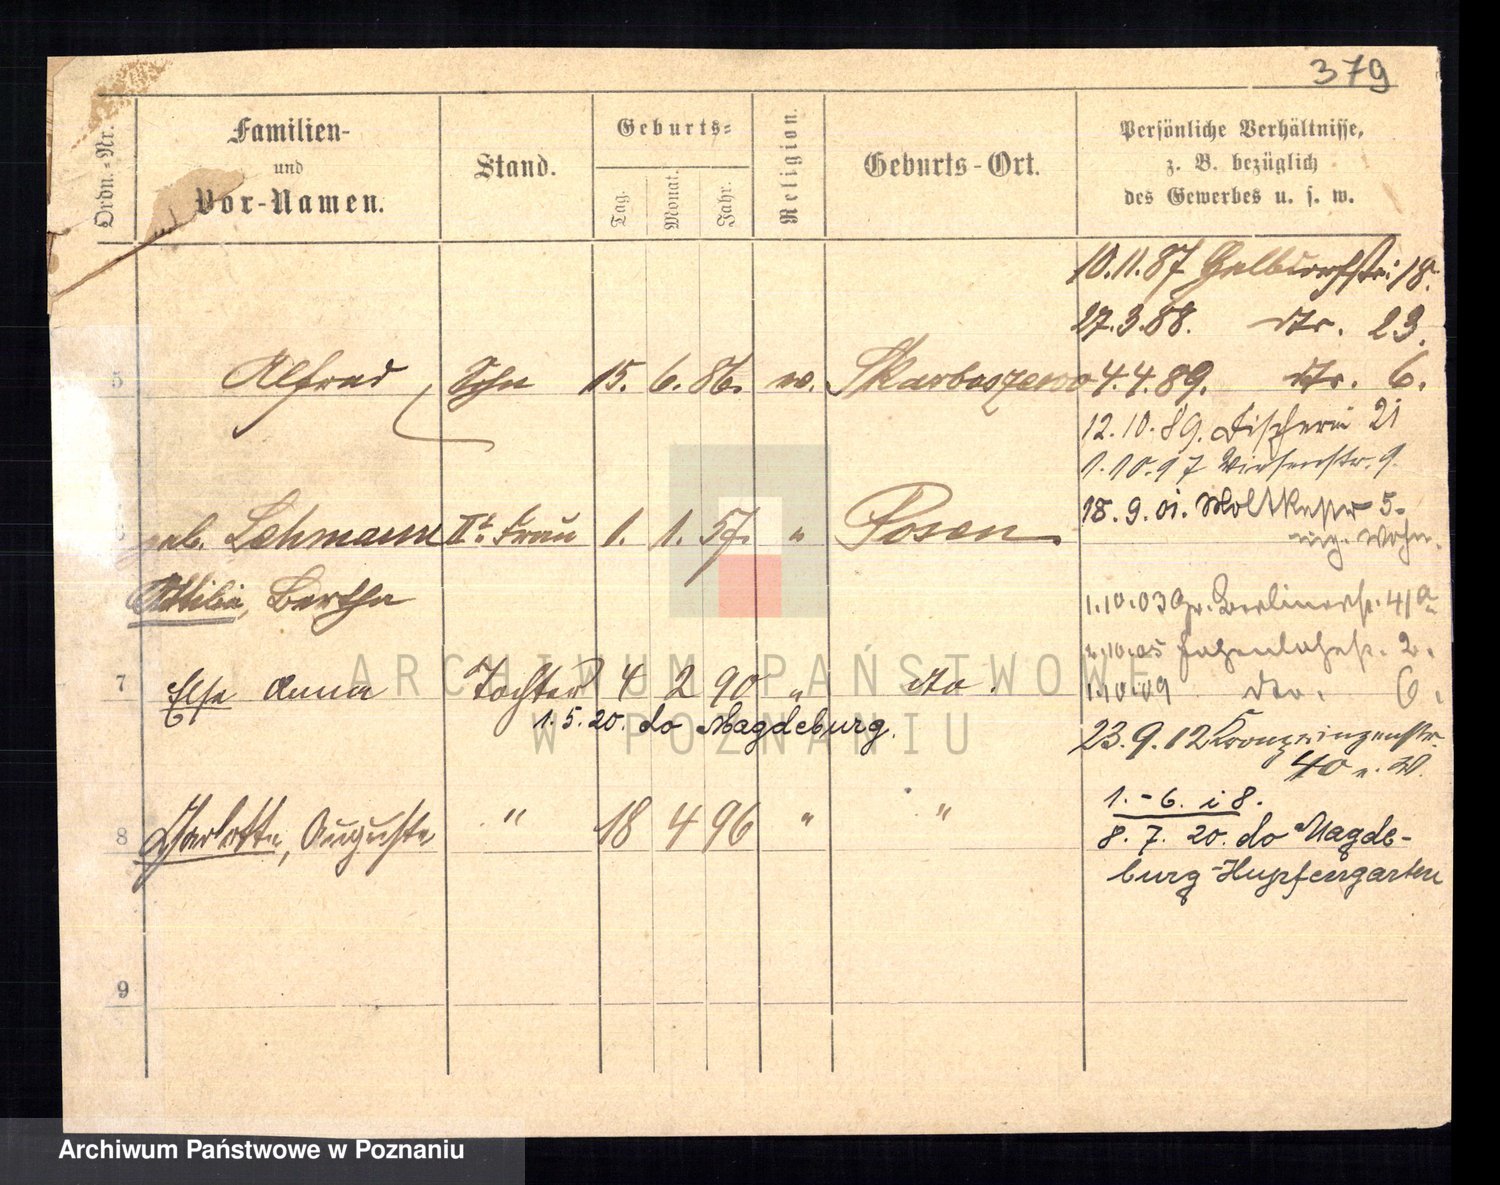 379
Ordn.-Nr.
Familien-
und
Vor-Namen.
Stand.
Geburts-
Tag.
Monat.
Jahr.
Religion.
Geburts-Ort.
Persönliche Verhältnisse,
z. B. bezüglich
des Gewerbes u. s. w.
10.11.87 18.
27.3.88. dto. 23.
5 Alfred Sohn 15. 6. 86. ev. Skarboszewo 4.4.89. dto. 6.
12.10.89. Fischerei 21
1.10.97 Wiesenstr. 9.
18.9.01. Moltkestr 5.
Wohn.
geb. Lehmann IIt. Frau 1. 1. 57. " Posen
Ottilie, Bertha
1.10.03 Gr. Berlinerstr. 41a
1.10.05 2.
7 Else Anna Tochter 4 2 90 " dto.
1.10.09 dto. 6.
1.5.20. do Magdeburg.
23.9.12 Kronprinzenstr.
40 n. W.
1.-6. i 8.
8 Charlotte, Auguste " 18 4 96 " "
8. 7. 20. do Magde-
burg-Hupfengarten
9
ARCHIWUM PAŃSTWOWE
W POZNANIU
Archiwum Państwowe w Poznaniu